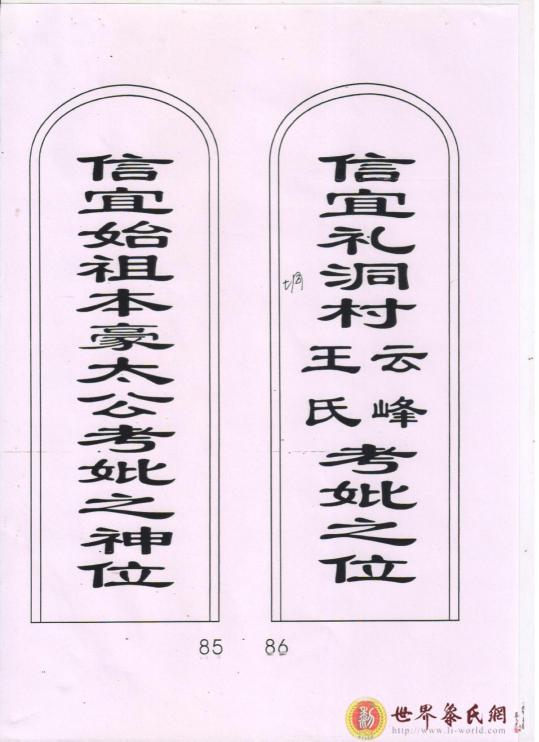 信宜礼洞村
云峰
王氏
考妣之位
垌
信宜始祖本豪太公考妣之神位
85 86
世界黎氏網
http://www.li-world.com